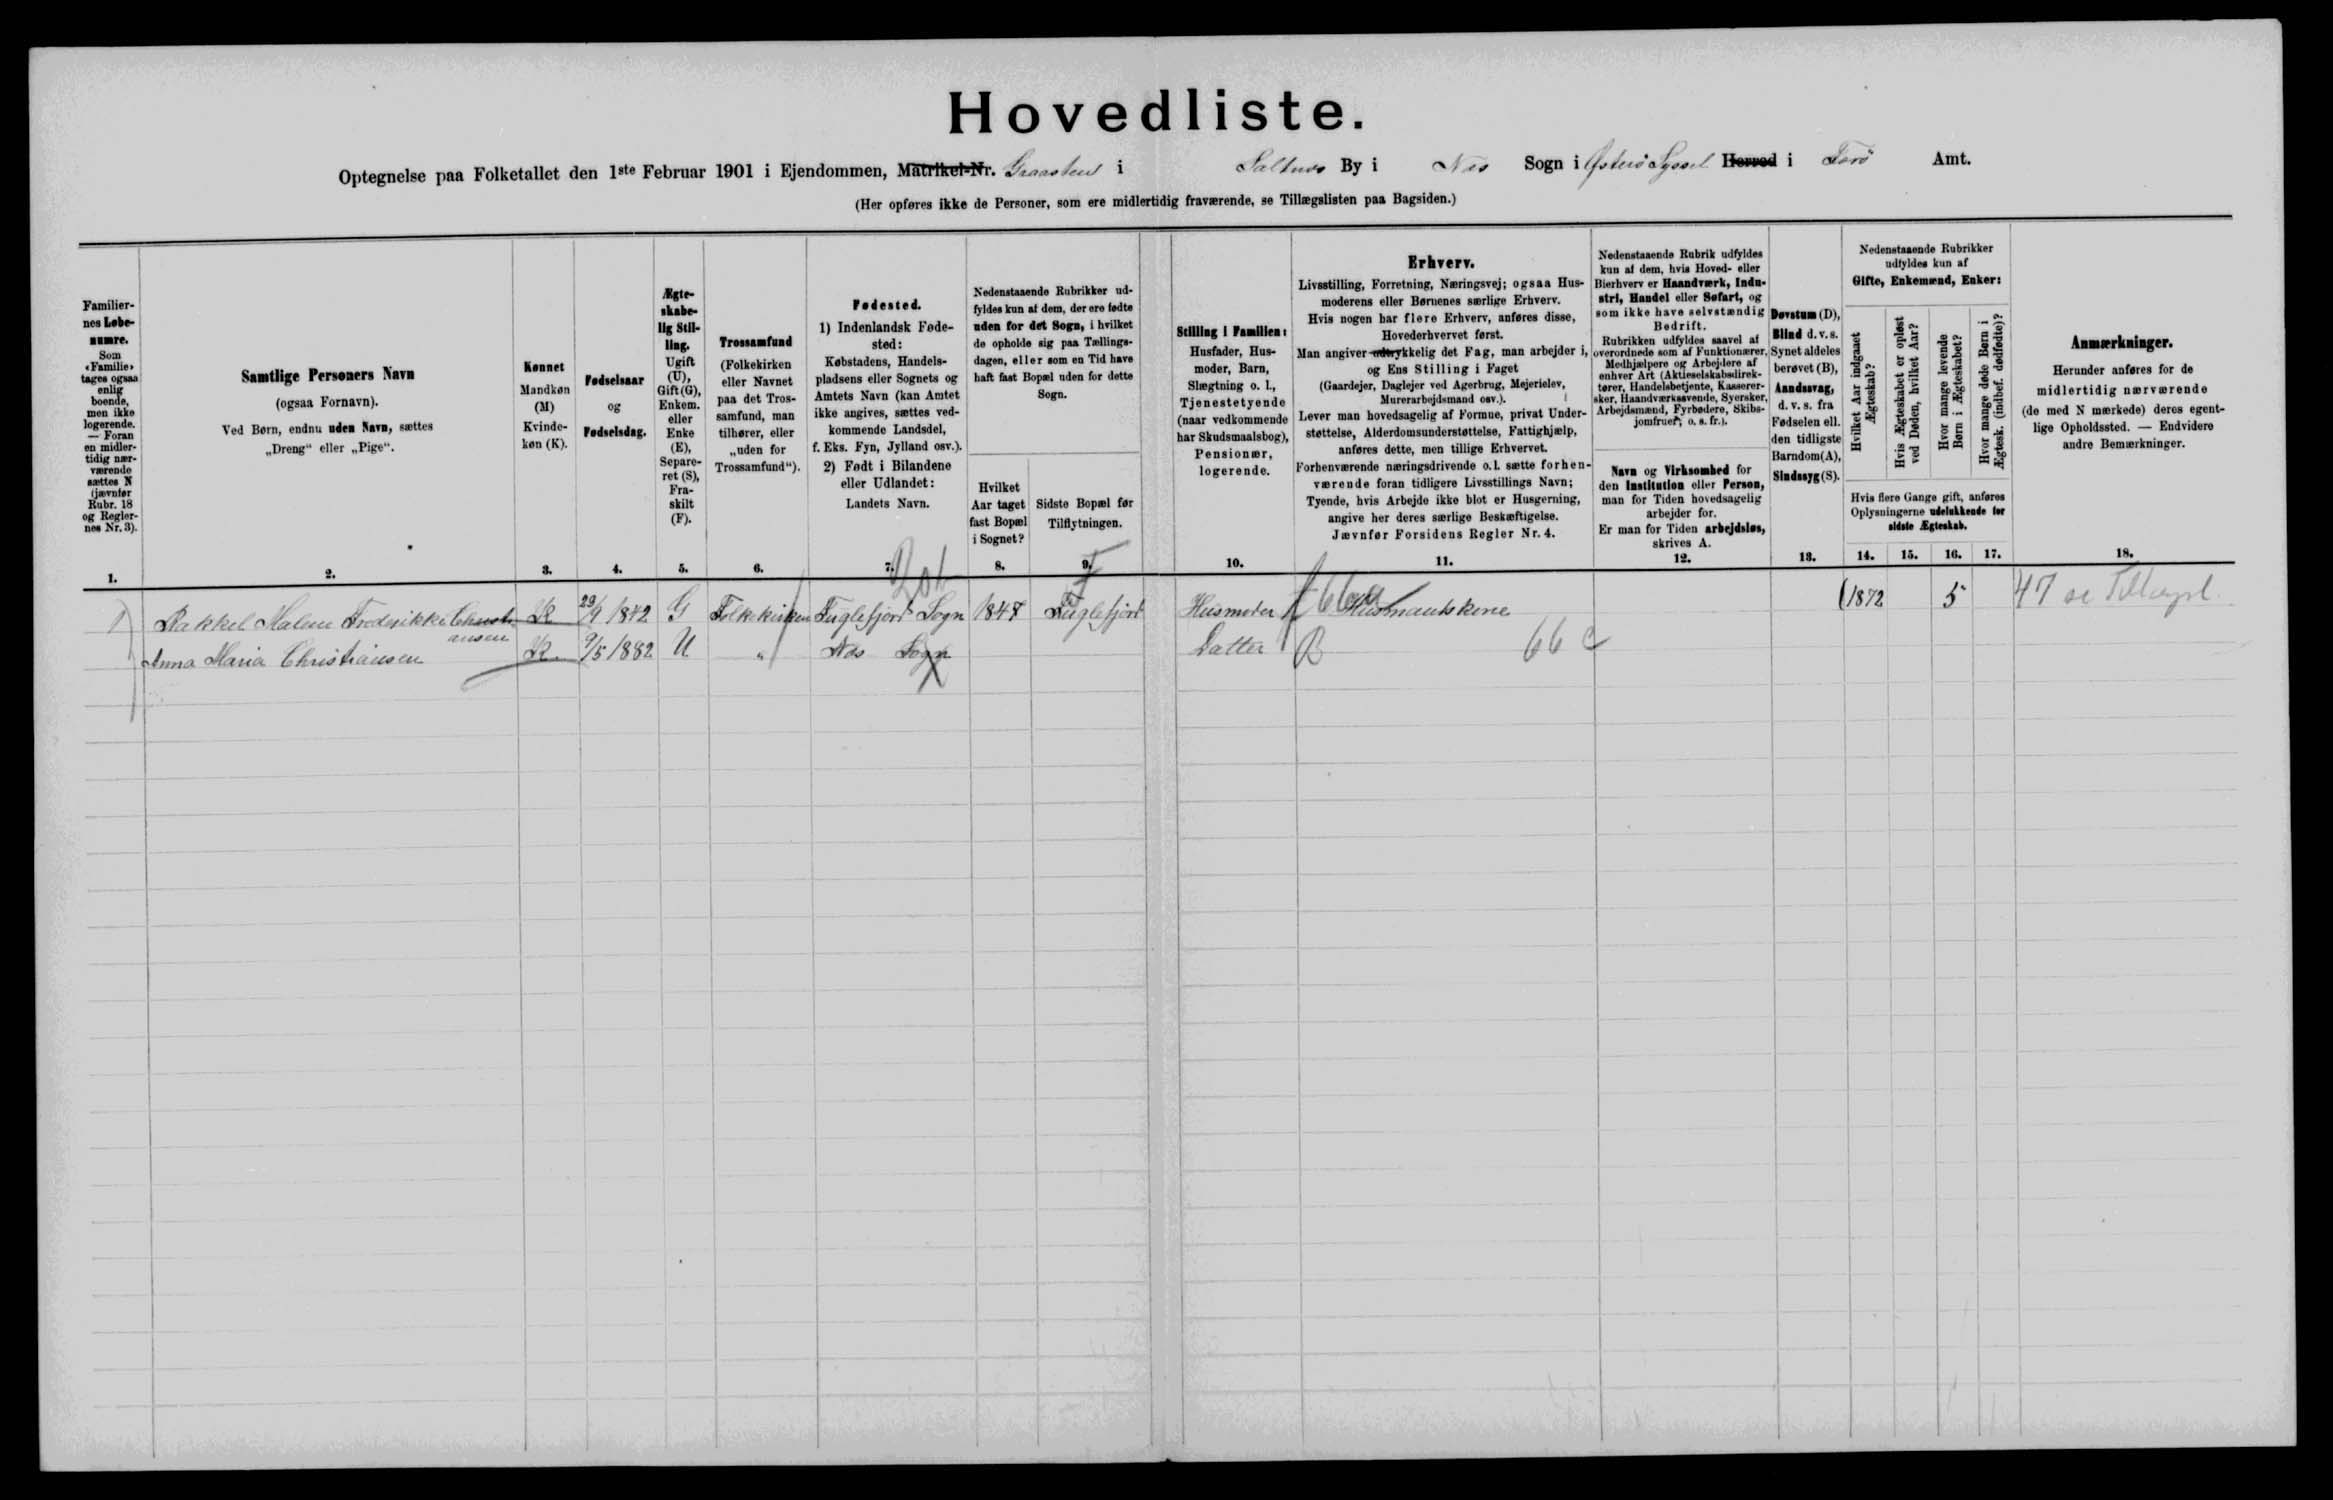 Hovedliste.
Optegnelse paa Folketallet den 1ste Februar 1901 i Ejendommen, Matrikel-Nr. Graasten i Saltnæs By i Næs Sogn i Østerø Syssel Herred i Færø Amt.
(Her opføres ikke de Personer, som ere midlertidig fraværende, se Tillægslisten paa Bagsiden.)
Familier-
nes Løbe-
numre.
Som
«Familie»
tages ogsaa
enlig
boende,
men ikke
logerende.
— Foran
en midler-
tidig nær-
værende
sættes N
(jævnfør
Rubr. 18
og Regler-
nes Nr. 3).
1.
Samtlige Personers Navn
(ogsaa Fornavn).
Ved Børn, endnu uden Navn, sættes
„Dreng“ eller „Pige“.
2.
Kønnet
Mandkøn
(M)
Kvinde-
køn (K).
3.
Fødselsaar
og
Fødselsdag.
4.
Ægte-
skabe-
lig Stil-
ling.
Ugift
(U),
Gift (G),
Enkem.
eller
Enke
(E),
Separe-
ret (S),
Fra-
skilt
(F).
5.
Trossamfund
(Folkekirken
eller Navnet
paa det Tros-
samfund, man
tilhører, eller
„uden for
Trossamfund“).
6.
Fødested.
1) Indenlandsk Føde-
sted:
Købstadens, Handels-
pladsens eller Sognets og
Amtets Navn (kan Amtet
ikke angives, sættes ved-
kommende Landsdel,
f. Eks. Fyn, Jylland osv.).
2) Født i Bilandene
eller Udlandet:
Landets Navn.
7.
Nedenstaaende Rubrikker ud-
fyldes kun af dem, der ere fødte
uden for det Sogn, i hvilket
de opholde sig paa Tællings-
dagen, eller som en Tid have
haft fast Bopæl uden for dette
Sogn.
Hvilket
Aar taget
fast Bopæl
i Sognet?
8.
Sidste Bopæl før
Tilflytningen.
9.
Stilling i Familien:
Husfader, Hus-
moder, Barn,
Slægtning o. l.,
Tjenestetyende
(naar vedkommende
har Skudsmaalsbog),
Pensionær,
logerende.
10.
Erhverv.
Livsstilling, Forretning, Næringsvej; ogsaa Hus-
moderens eller Børnenes særlige Erhverv.
Hvis nogen har flere Erhverv, anføres disse,
Hovederhvervet først.
Man angiver udtrykkelig det Fag, man arbejder i,
og Ens Stilling i Faget
(Gaardejer, Daglejer ved Agerbrug, Mejerielev,
Murerarbejdsmand osv.).
Lever man hovedsagelig af Formue, privat Under-
støttelse, Alderdomsunderstøttelse, Fattighjælp,
anføres dette, men tillige Erhvervet.
Forhenværende næringsdrivende o. l. sætte forhen-
værende foran tidligere Livsstillings Navn;
Tyende, hvis Arbejde ikke blot er Husgerning,
angive her deres særlige Beskæftigelse.
Jævnfør Forsidens Regler Nr. 4.
11.
Nedenstaaende Rubrik udfyldes
kun af dem, hvis Hoved- eller
Bierhverv er Haandværk, Indu-
stri, Handel eller Søfart, og
som ikke have selvstændig
Bedrift.
Rubrikken udfyldes saavel af
overordnede som af Funktionærer,
Medhjælpere og Arbejdere af
enhver Art (Aktieselskabsdirek-
tører, Handelsbetjente, Kasserer-
sker, Haandværkssvende, Syersker,
Arbejdsmænd, Fyrbødere, Skibs-
jomfruer, o. s. fr.).
Navn og Virksomhed for
den Institution eller Person,
man for Tiden hovedsagelig
arbejder for.
Er man for Tiden arbejdsløs,
skrives A.
12.
Døvstum (D),
Blind d. v. s.
Synet aldeles
berøvet (B),
Aandssvag,
d. v. s. fra
Fødselen ell.
den tidligste
Barndom (A),
Sindssyg (S).
13.
Nedenstaaende Rubrikker
udfyldes kun af
Gifte, Enkemænd, Enker:
Hvilket Aar indgaaet
Ægteskab?
Hvis Ægteskabet er opløst
ved Døden, hvilket Aar?
Hvor mange levende
Børn i Ægteskabet?
Hvor mange døde Børn i
Ægtesk. (indbef. dødfødte)?
Hvis flere Gange gift, anføres
Oplysningerne udelukkende for
sidste Ægteskab.
14. 15. 16. 17.
Anmærkninger.
Herunder anføres for de
midlertidig nærværende
(de med N mærkede) deres egent-
lige Opholdssted. — Endvidere
andre Bemærkninger.
18.
Rakkel Malene Frederikke Christi-
ansen K 29/9 1842 G Folkekirken Fuglefjord Sogn 1847 Fuglefjord Husmoder 66a Husmandskone 1872 5 47 se Tillægsl.
Anna Maria Christiansen K. 9/5 1882 U „ Næs Sogn Datter B 66 c